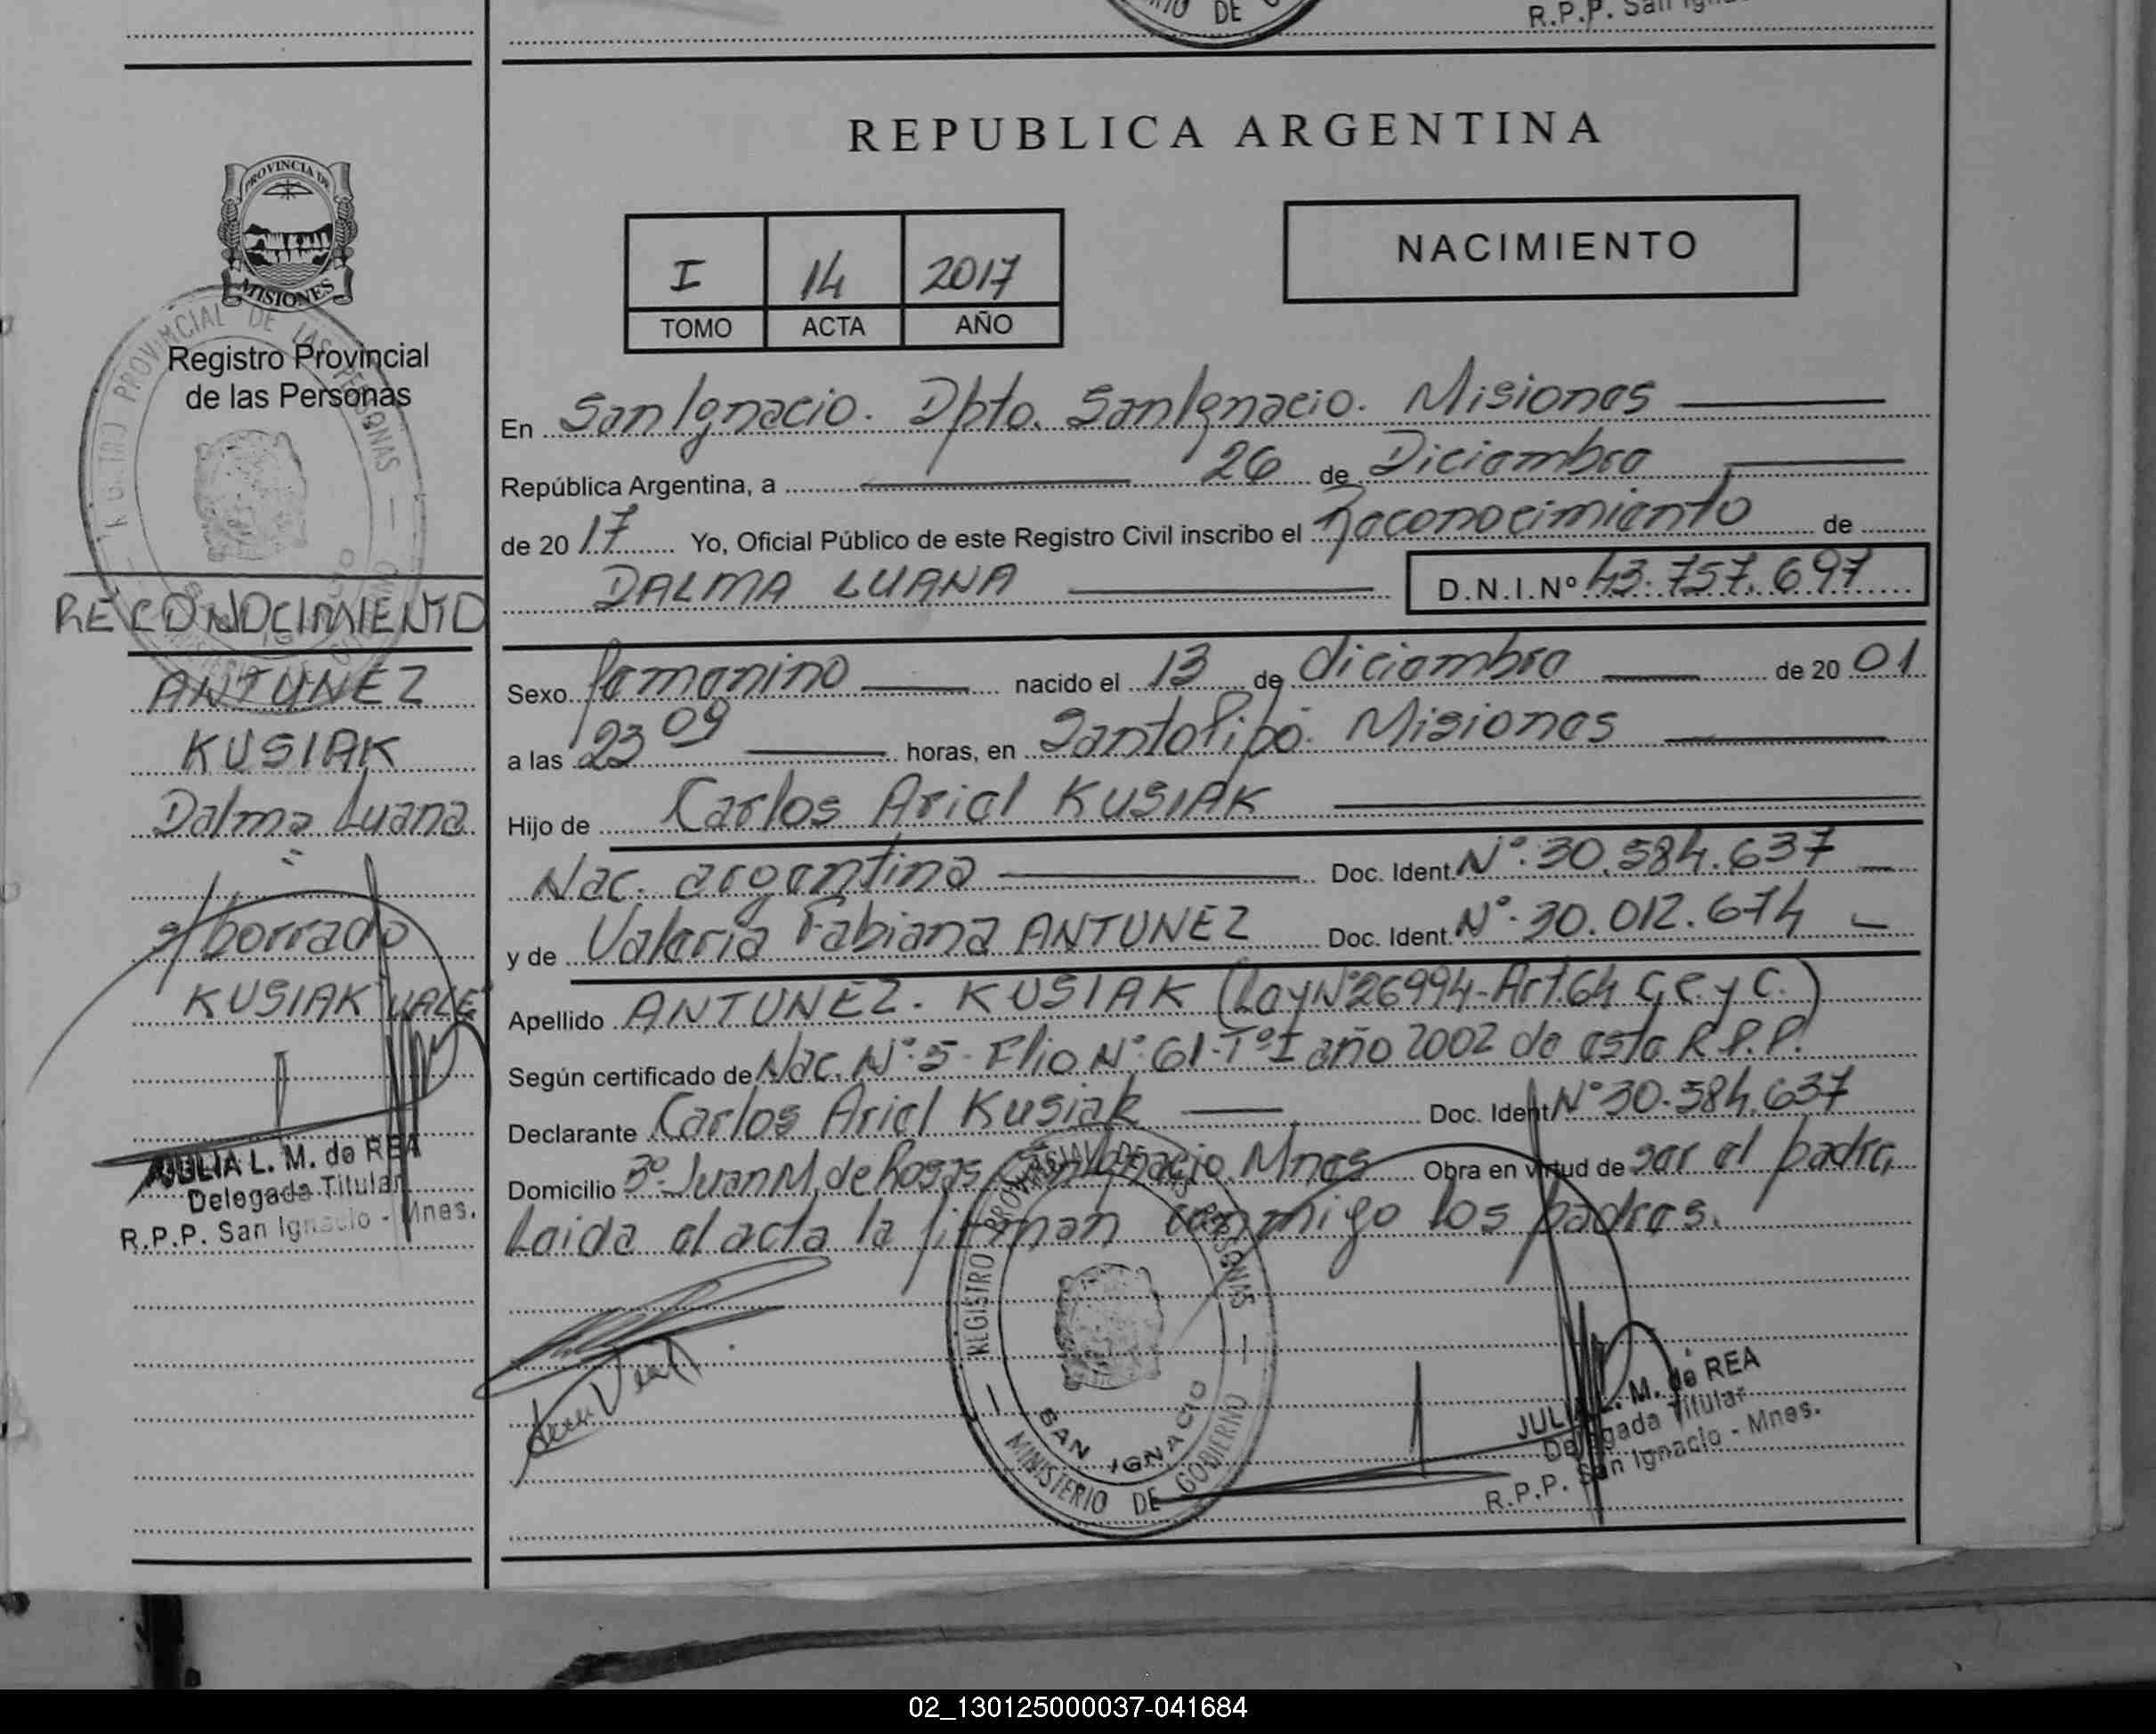 R.P.P. San Ign
REPUBLICA ARGENTINA
PROVINCIA DE
MISIONES
Registro Provincial
de las Personas
I 14 2017
TOMO ACTA AÑO
NACIMIENTO
En San Ignacio. Dpto. San Ignacio. Misiones
República Argentina, a 26 de Diciembre
de 2017 Yo, Oficial Público de este Registro Civil inscribo el Reconocimiento de
DALMA LUANA D.N.I.Nº 43.757.697
Sexo femenino nacido el 13 de diciembre de 2001
a las 23 09 horas, en Santo Pipó. Misiones
Hijo de Carlos Ariel KUSIAK
Nac. argentina Doc. Ident. Nº. 30.584.637
y de Valeria Fabiana ANTUNEZ Doc. Ident. Nº. 30.012.674
Apellido ANTUNEZ. KUSIAK (Ley Nº26994-Art.64 C.C. y C.)
Según certificado de Nac. Nº. 5 - Flio Nº. 61-Tº I año 2002 de esta R.P.P.
Declarante Carlos Ariel Kusiak Doc. Ident Nº 30.584.637
Domicilio Bº. Juan M. de Rosas, San Ignacio. Mnes Obra en virtud de ser el padre,
Leida el acta la firman conmigo los padres.
RECONOCIMIENTO
ANTUNEZ
KUSIAK
Dalma Luana
s/borrado
KUSIAK "VALE"
JULIA L. M. de REA
Delegada Titular
R.P.P. San Ignacio - Mnes.
REGISTRO PROVINCIAL DE LAS PERSONAS
SAN IGNACIO
MINISTERIO DE GOBIERNO
JULIA L. M. de REA
Delegada Titular
R.P.P. San Ignacio - Mnes.
02_130125000037-041684